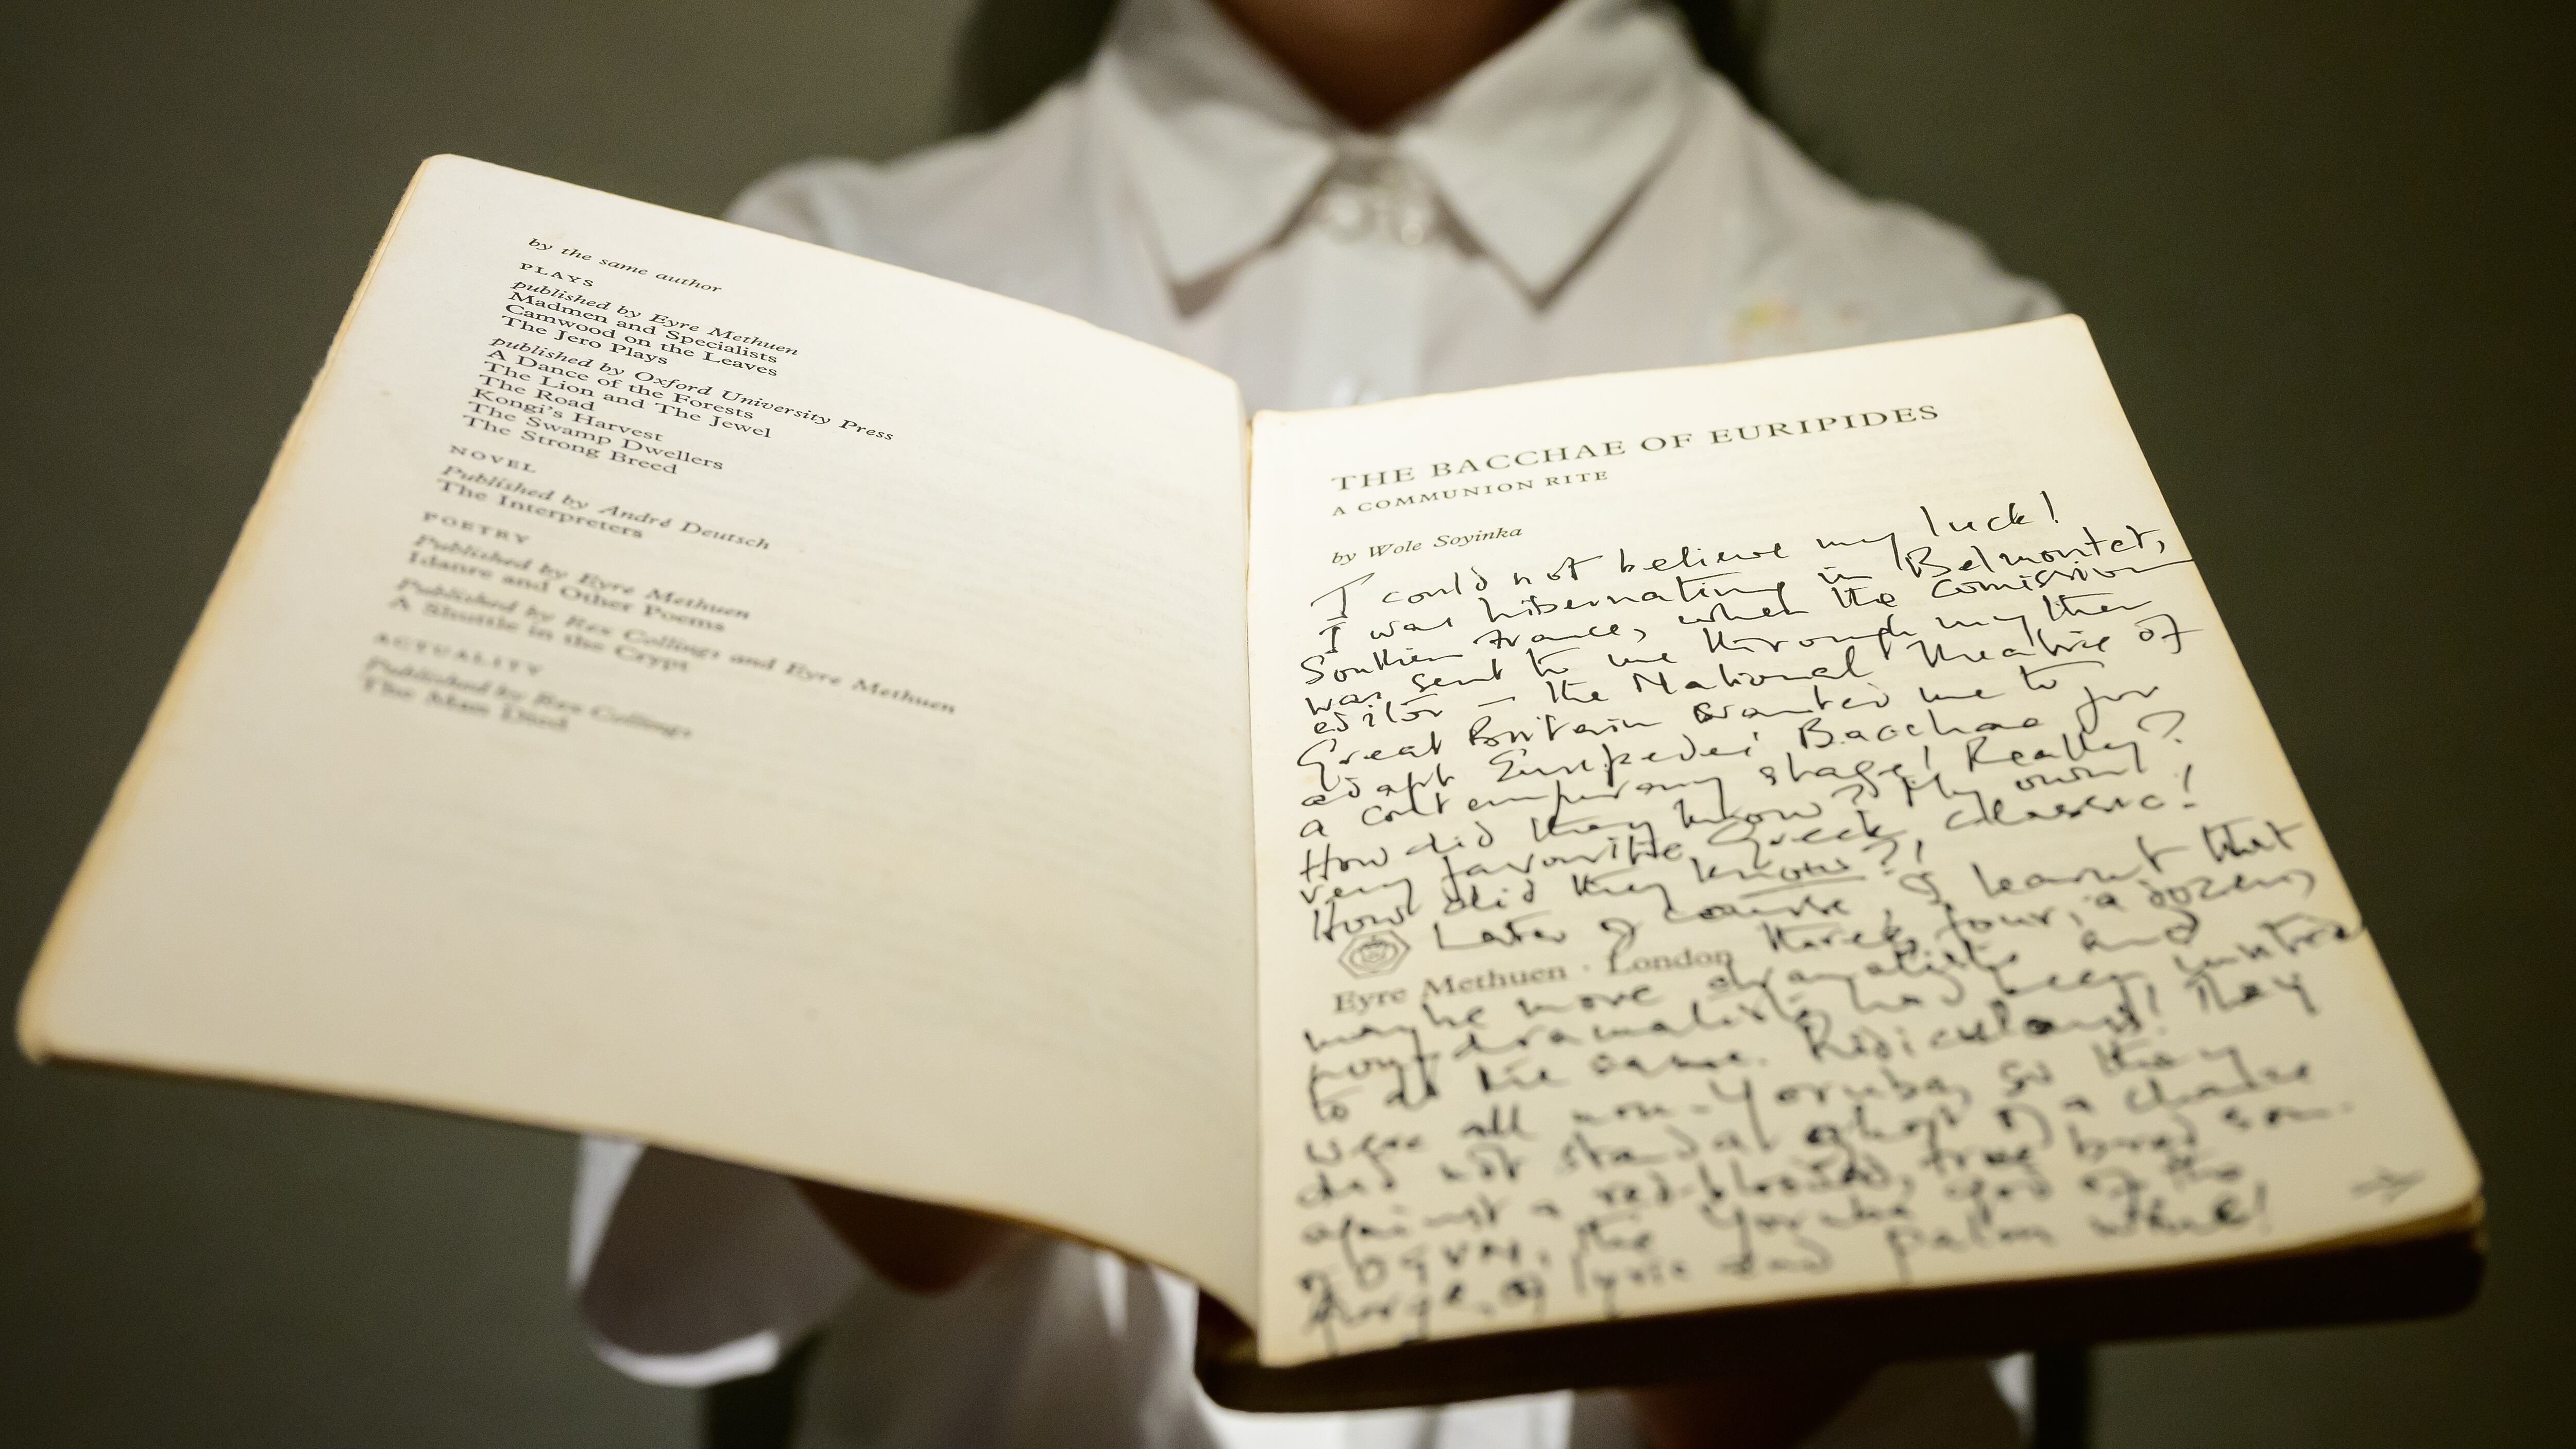 by the same author
PLAYS
published by Eyre Methuen
Madmen and Specialists
Camwood on the Leaves
The Jero Plays
published by Oxford University Press
A Dance of the Forests
The Lion and The Jewel
The Road
Kongi's Harvest
The Swamp Dwellers
The Strong Breed
NOVEL
Published by André Deutsch
The Interpreters
POETRY
Published by Eyre Methuen
Idanre and Other Poems
Published by Rex Collings and Eyre Methuen
A Shuttle in the Crypt
ACTUALITY
Published by Rex Collings
The Man Died
THE BACCHAE OF EURIPIDES
A COMMUNION RITE
by Wole Soyinka
I could not believe my luck!
I was hibernating in Belmontet,
Southern France, when the comission
was sent to me through my then
editor – the National Theatre of
Great Britain wanted me to
adapt Euripedes' Bacchae for
a contemporary stage! Really?
How did they know? My own
very favourite Greek classic!
How did they know?!
Later of course, I learnt that
three, four, a dozen,
Eyre Methuen · London
maybe more dramatists and
non-dramatists had been invited
to do the same. Ridiculous! They
were all non-Yoruba, so they
did not stand a ghost of a chance
against a red-blooded, true bred son
of Ogun, the Yoruba god of the
forge, of lyric and palm wine!